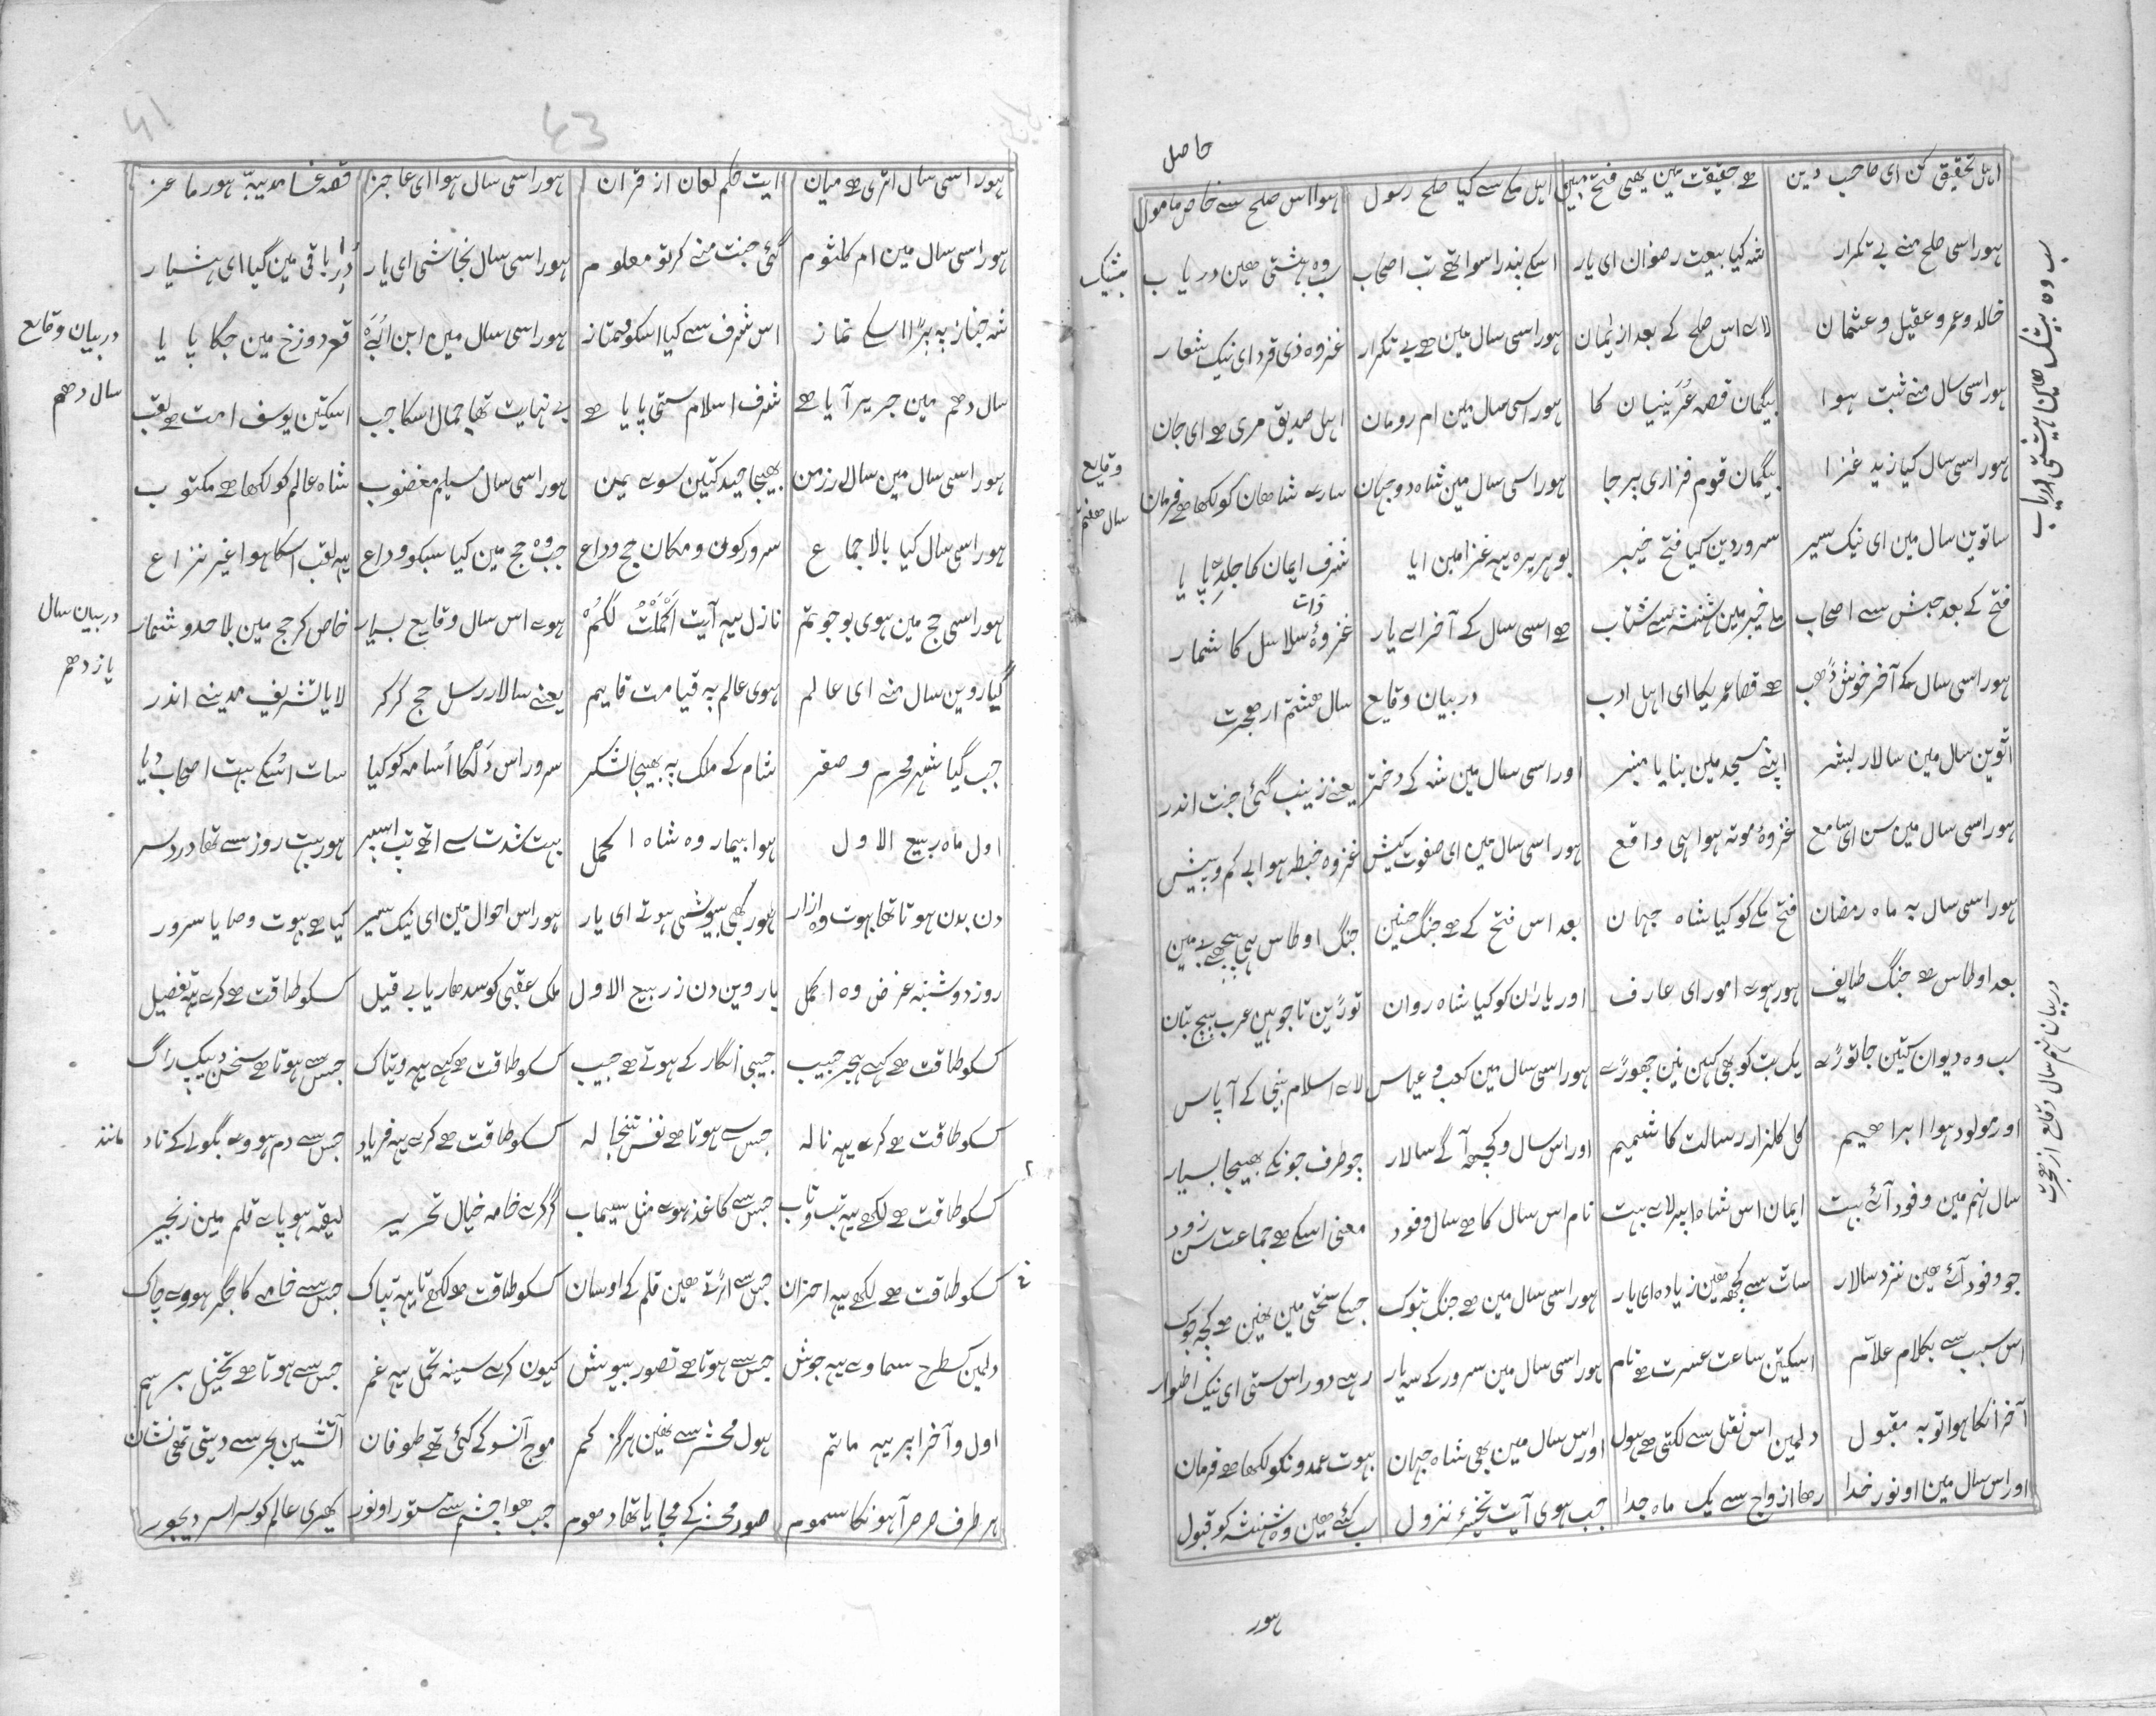 حاصل
اہل تحقیق کن ای صاحب دین ھے حقیقت مین یھی فتح مبین اہل مکے سے کیا صلح رسول ہوا اس صلح سے خاص مامول
ہور اسی صلح منے بے تکرار شہ کیا بیعت رضوان ای یار اسکے پندرا سو اتھے تب اصحاب سب وہ بہشتی ھین دریاب
بیشک
سب وہ بیشک ھین بہشتی دریاب
خالد و عمرو عقیل و عشمان لاے اس صلح کے بعد از ایمان ہور اسی سال مین ھے بے تکرار غزوہ ذی قرد ای نیک شعار
ہور اسی سال منے ثبت ہوا بیگمان قصہ عُرَینیان کا ہور اسی سال مین ام رومان اہل صدیق مری ھے ای جان
ہور اسی سال کیا زید غزا بیگمان قوم فزاری بر جا ہور اسی سال مین شاہ دو جہان سارے شاھان کو لکھا ھے فرمان
وقایع
سال ھفتم
ساتوین سال مین ای نیک سیر سرور دین کیا فتح خیبر بوہریرہ بیہ غزا مین ایا شرف ایمان کا جلد پایا
فتح کے بعد حبش سے اصحاب ملے خیبر مین شہنشہ سے شتاب ھے اسی سال کے آخر اے یار غزوۂ ذات سلاسل کا شمار
ہور اسی سال کے آخر خوش ڈھب ھے قضا عمریکا ای اہل ادب در بیان وقایع سال ھشتم از ھجرت
اٹوین سال مین سالار بشر اپنے مسجد مین بنایا منبر اور اسی سال مین شہ کے دختر یعنے زینب گئی جنت اندر
ہور اسی سال مین سن ای سامع غزوۂ موتہ ہوا ہی واقع ہور اسی سال مین ای صفوت کیش غزوہ خبطہ ہوا بے کم و بیش
ہور اسی سال بہ ماہ رمضان فتح مکے کو کیا شاہ جہان بعد اس فتح کے ھے جنگ حنین جنگ اوطاس ہی پیچھے بے مین
بعد اوطاس ھے جنگ طایف ہور ہوے امور ای عارف اور یاران کو کیا شاہ روان توڑین تا جو ہین عرب بیچ بتان
سب وہ دیوان کتین جا توڑے یک بت کو بھی کہین نین چھوڑے ہور اسی سال مین کعب و عباس لاے اسلام نبی کے آ پاس
در بیان نہم سال وقایع از ھجرت
اور مولود ہوا ابراھیم گل گلزار رسالت کا شمیم اور اس سال و کچھہ آگے سالار چو طرف جونکے بھیجا بسیار
سال نہم مین وفود آئے بہت ایمان اس شاہ اپر لاے بہت نام اس سال کا ھے سال وفود معنی اسکے ھے جماعت سن زود
جو وفود آئے ھین نزد سالار سات سے کچھہ ھین زیادہ ای یار ہور اسی سال مین ھے جنگ تبوک جسکے سختی مین نھین ھے کچھ چوک
اس سبب سے بکلام علاّم اسکتین ساعت عسرت ھے نام ہور اسی سال مین سرور کے سہ یار رہے دور اس ستی ای نیک اطوار
آخر انکا ہوا توبہ مقبول دلمین اس نقل سے لکتی ھے ہول اور اس سال مین بھی شاہ جہان بہوت عمدونکو لکھا ھے فرمان
اور اس سال مین او نور خدا رھا ازواج سے یک ماہ جدا جب ہوی آیت تخییر نزول سب کئے ھین وہ شہنشہ کو قبول
ہور
41
43
ہور اسی سال اتری ھے میان ایت حکم لعان از قران ہور اسی سال ہوا ای عاجز قصہ غامدیہ ہور ماعز
ہور اسی سال مین ام کلثوم گئی جنت منے کر تو معلوم ہور اسی سال نجاشی ای یار دار باقی مین گیا ای ہشیار
شہ جنازہ پہ پڑا اسکے نماز اس شرف سے کیا اسکو ممتاز ہور اسی سال مین ابن ابیّ قعر دوزخ مین جگا پایا
در بیان وقایع
سال دھم
سال دھم مین جریر آیا ھے شرف اسلام ستی پایا ھے بے نہایت تھا جمال اسکا جب اسکتین یوسف امت ھے لقب
ہور اسی سال مین سالار زمن بھیجا حیدر کتین سوے یمن ہور اسی سال مسیلم مغضوب شاہ عالم کو لکھا ھے مکتوب
ہور اسی سال کیا بالاجماع سرور کون و مکان حج وداع جب وہ حج مین کیا سبکو وداع یہہ لقب اسکا ہوا غیر نزاع
ہور اسی حج مین ہوی بوجو تم نازل یہہ آیت اکملت لکم ہوے اس سال وقایع بسیار خاص کر حج مین بلا حد و شمار
در بیان سال
یازدھم
گیاروین سال منے ای عالم ہوی عالم پہ قیامت قایم یعنے سالار رسل حج کر کر لایا تشریف مدینے اندر
جب گیا شہر محرم و صفر شام کے ملک پہ بھیجا لشکر سرور اس دَلکا اُسامہ کو کیا سات اسکے بہت اصحاب دیا
اول ماہ ربیع الاول ہوا بیمار وہ شاہ اکمل بہت شدت سے اتھے تب اسپر ہور بہت روز سے تھا درد سر
دن بدن ہوتا تھا بہوت وہ ازار ہور کبھی بیہوشی ہوتے ای یار ہور اس احوال مین ای نیک سیر کیا ھے بہوت وصایا سرور
روز دوشنبہ غرض وہ اکمل باروین دن ز ربیع الاول ملک عقبی کو سدھاریا بے قیل کسکو طاقت ھے کرے یہہ تفصیل
کسکو طاقت ھے کہے ہجر حبیب جیبی انگار کے ہوتے ھے جیب کسکو طاقت ھے کہے یہہ ویتاک جس سے ہوتا ھے سخن دیپک راگ
کسکو طاقت ھے کرے یہہ نالہ جس سے ہوتا ھے نفس تنجالہ کسکو طاقت ھے کرے یہہ فریاد جس سے دم ہووے بگولے کے ناد
مانند
کسکو طاقت ھے لکھے یہہ تب و تاب جس سے کاغذ ہوے مثل سیماب گر کرے خامہ خیال تحریر لیقہ ہو پاے قلم مین زنجیر
کسکو طاقت ھے لکھے یہہ احزان جس سے اڑتے ھین قلم کے اوسان کسکو طاقت ھے لکھے تا یہہ تپاک جس سے خامے کا جگر ہووے چاک
دلمین کسطرح سماوے یہہ جوش جس سے ہوتا ھے تصور بیہوش کیون کرے سینہ تحمل یہہ غم جس سے ہوتا ھے تخیل برہم
اول و آخر اپر یہہ ماتم ہول محشر سے نھین ہرگز کم موج آنسو کے گئی تھے طوفان آتشین بحر سے دیتی تھی نشان
ہر طرف صرصر آہونکا سموم صور محشر کے مچایا تھا دھوم جب ھوا چشم سے مستور او نور کھری عالم کو سراسر دیجور